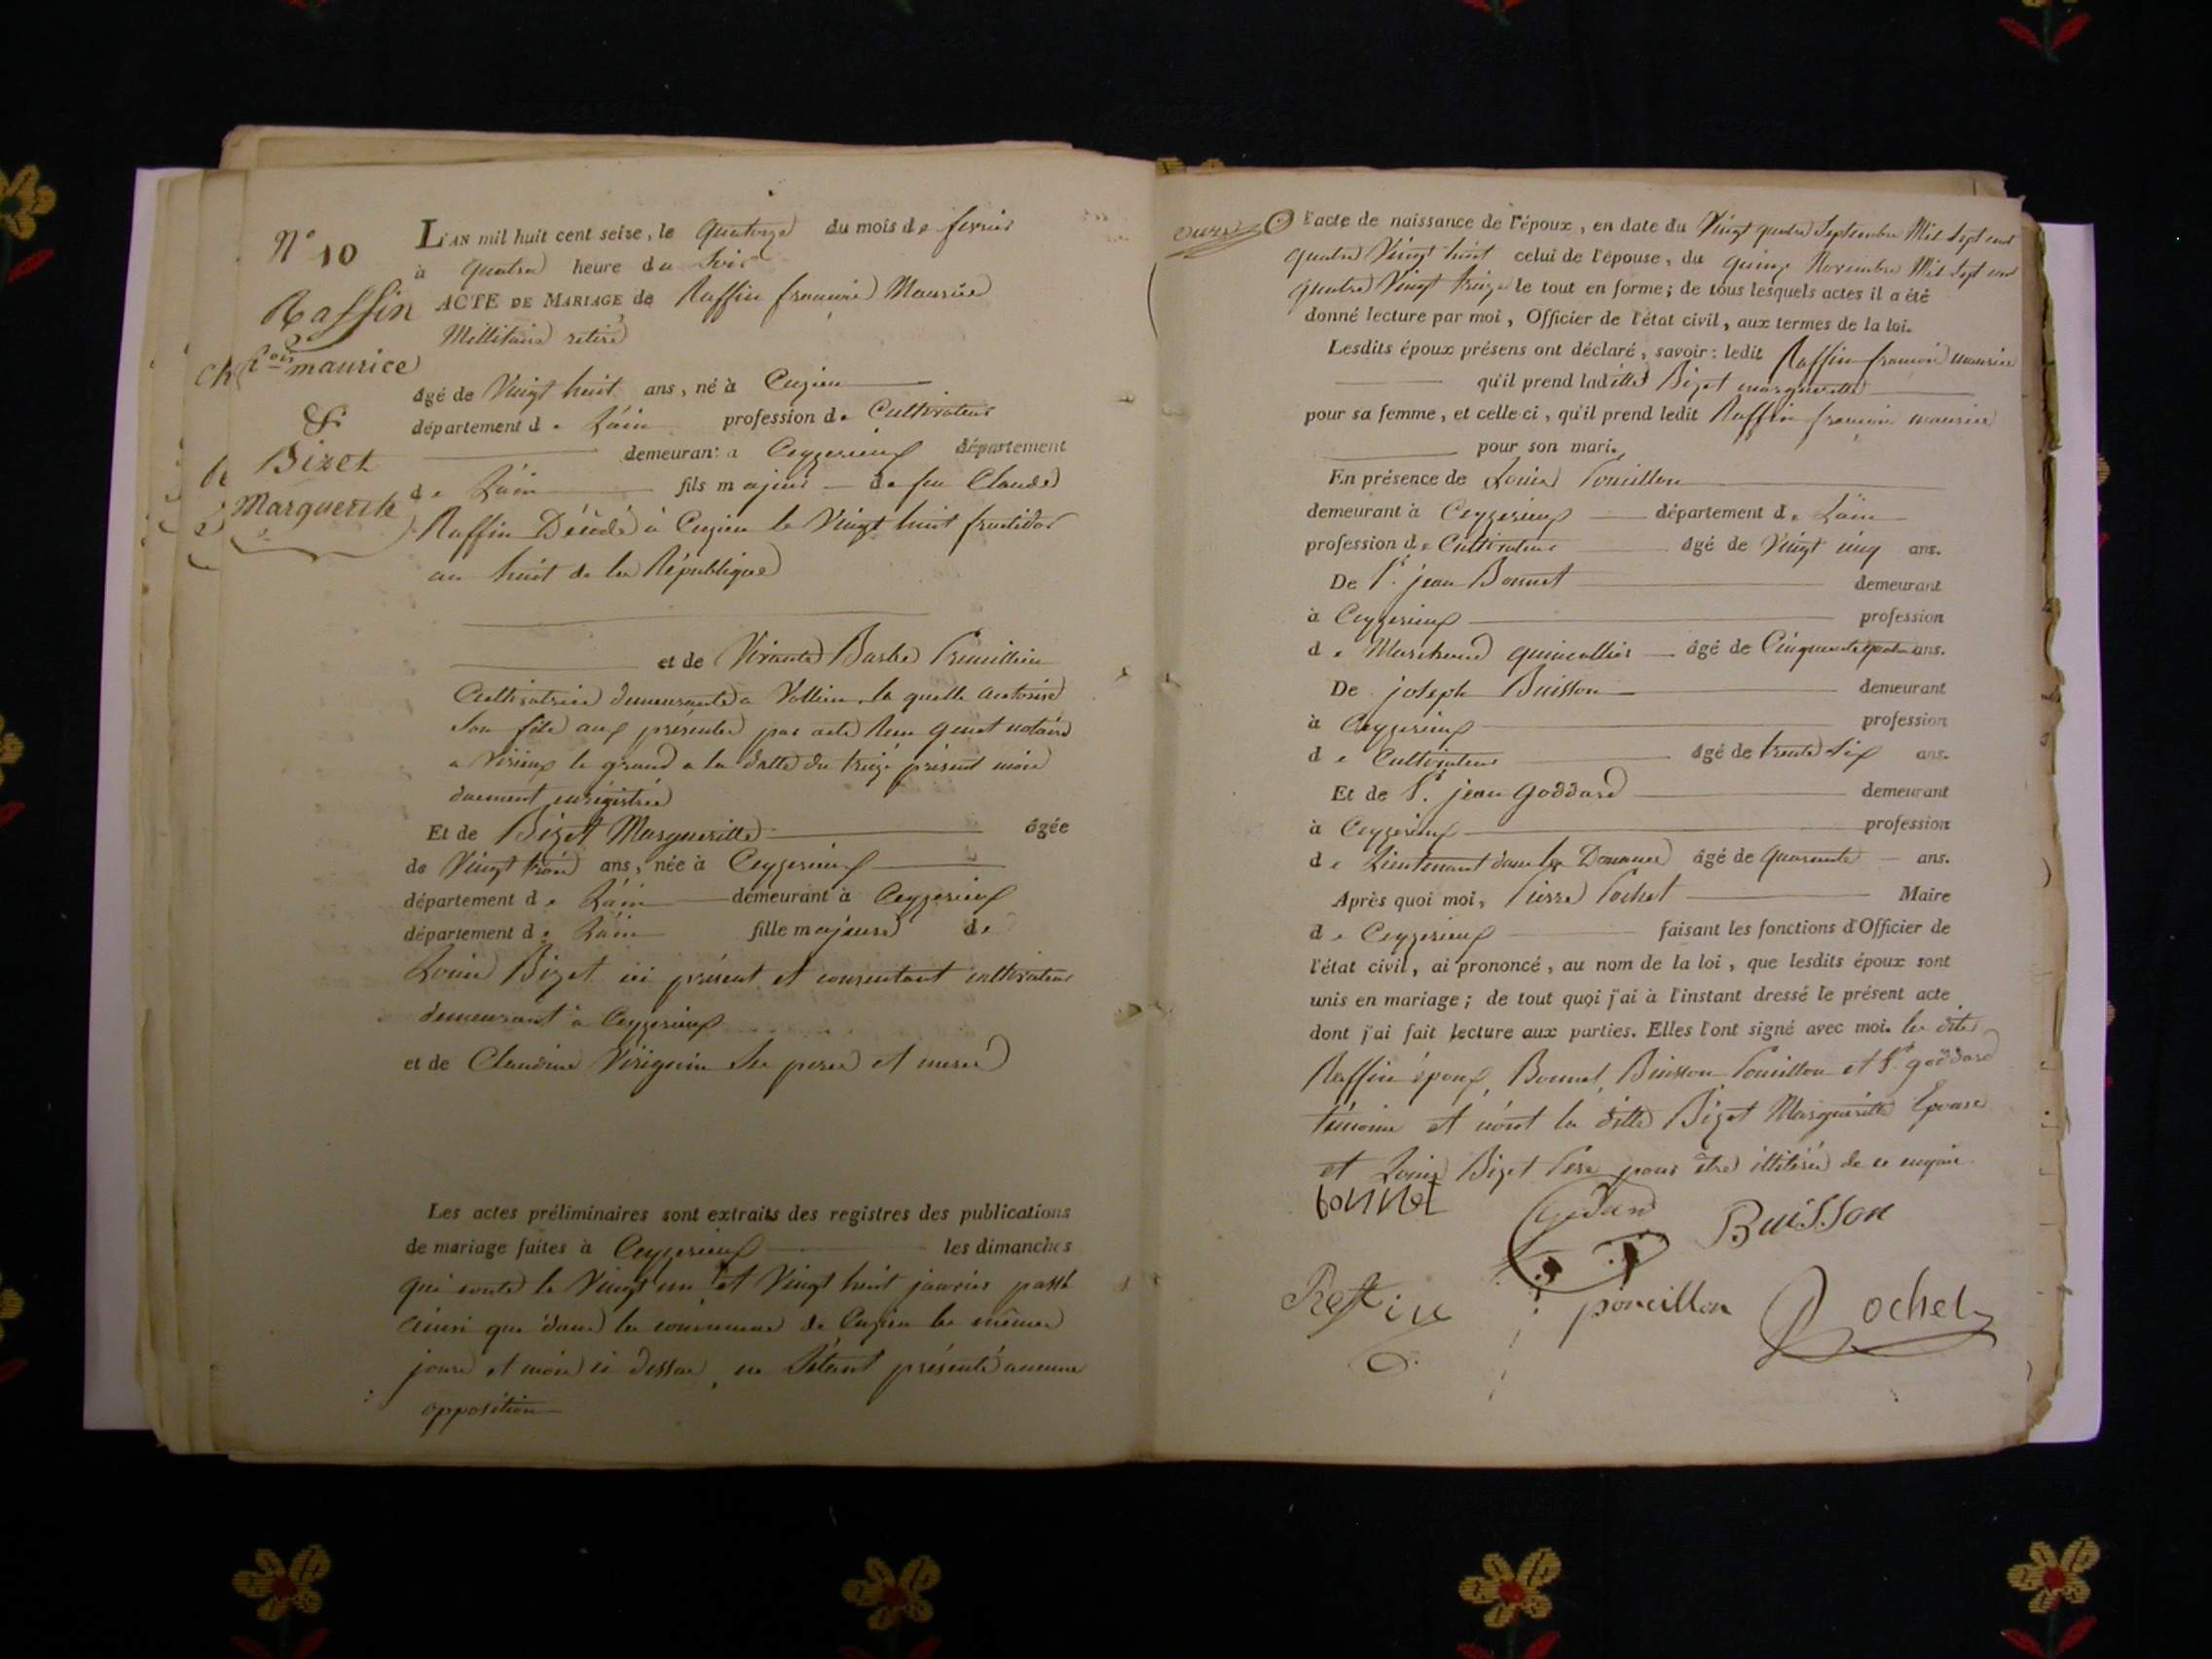 N° 10
Raffin
f.ois maurice
&
Bizet
Marguerite
L'AN mil huit cent seize, le quatorze du mois de fevrier
à quatre heure du soir
ACTE DE MARIAGE de Raffin francois Maurice
Millitaire retiré
âgé de Vingt huit ans, né à Cuzieu
département de L'ain profession de Cultivateur
demeurant à Ceyzerieux département
de L'ain fils majeur de feu Claude
Raffin Décédé à Cuzieu le Vingt huit fructidor
an huit de la République
et de Vivante Barbe
Cultivatrice demeurante a Vollien, la quelle autorise
son fils aux présentes par acte Reçu genet notaire
a Virieux le grand a la datte du treize présent mois
duement enrégistrée
Et de Bizet Margueritte âgée
de Vingt trois ans, née à Ceyzerieux
département de L'ain demeurant à Ceyzerieux
département de L'ain fille majeure de
Louis Bizet ici présent et consentant cultivateur
demeurant à Ceyzerieux
et de Claudine Viriguin Ses peres et meres
Les actes préliminaires sont extraits des registres des publications
de mariage faites à Ceyzerieux les dimanches
qui conte le Vingt un et Vingt huit janvier passé
ainsi que dans la commune de Cuzieu les mêmes
jours et mois ci dessus, ne s'étant présenté aucune
opposition
l'acte de naissance de l'époux, en date du Vingt quatre Septembre Mil sept cent
quatre Vingt huit celui de l'épouse, du quinze Novembre Mil sept cent
quatre Vingt treize le tout en forme; de tous lesquels actes il a été
donné lecture par moi, Officier de l'état civil, aux termes de la loi.
Lesdits époux présens ont déclaré, savoir: ledit Raffin francois maurice
qu'il prend ladite Bizet margueritte
pour sa femme, et celle ci, qu'il prend ledit Raffin francois maurice
pour son mari.
En présence de Louis Poncillon
demeurant à Ceyzerieux département de L'ain
profession de Cultivateur âgé de Vingt cinq ans.
De Sr. jean Bonnet demeurant
à Ceyzerieux profession
de Marchand quincallier âgé de Cinquante quatre ans.
De joseph Buisson demeurant
à Ceyzerieux profession
de Cultivateur âgé de trente Six ans.
Et de Sr. jean goddard demeurant
à Ceyzerieux profession
de Lieutenant dans les Douanes âgé de quarante ans.
Après quoi moi, Pierre Pochet Maire
de Ceyzerieux faisant les fonctions d'Officier de
l'état civil, ai prononcé, au nom de la loi, que lesdits époux sont
unis en mariage; de tout quoi j'ai à l'instant dressé le présent acte
dont j'ai fait lecture aux parties. Elles l'ont signé avec moi. les dits
Raffin époux, Bonnet, Buisson Poncillon et Sr. goddard
témoins et non la ditte Bizet Margueritte Epouse
et Louis Bizet Pere pour être illitérés de ce enquis
bonnet
Buisson
Raffin
poncillon
Pochet